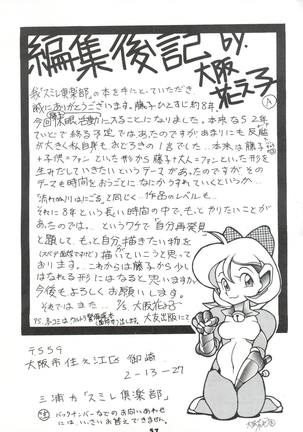 編集後記 by.大阪花え子
我「スミレ倶楽部」の本を手にとっていただき
誠にありがとうございます。藤子ひとすじに約8年。
今回休眠活動に入ることになりました。本来なら2年
ていどで終る予定ではあったのですがあまりにも反応
が大きく私自身もおどろきの1言でした…本来は藤子
+子供=ファンといった形から藤子+大人=ファンといった形を
生みだしていきたいというテーマがあったのですが
テーマも時間をおうごとになにかうすれていくというか…
作品のレベルも…
それに8年という長い時間の中で、もっとやりたいことが
あったのでは…というワケで自分再発見
と題して、もっと自分描きたい物を
描いていこうと思って
おります。これからは藤子から少し
はなれる形になると思いますが
今後もよろしくお願いします。
それではまた… 大阪花え子
〒559
大阪市住之江区御崎
2-13-27
三浦方「スミレ倶楽部」
バックナンバーなどのお問いあわせ
には、いっさいお答えできません。
57